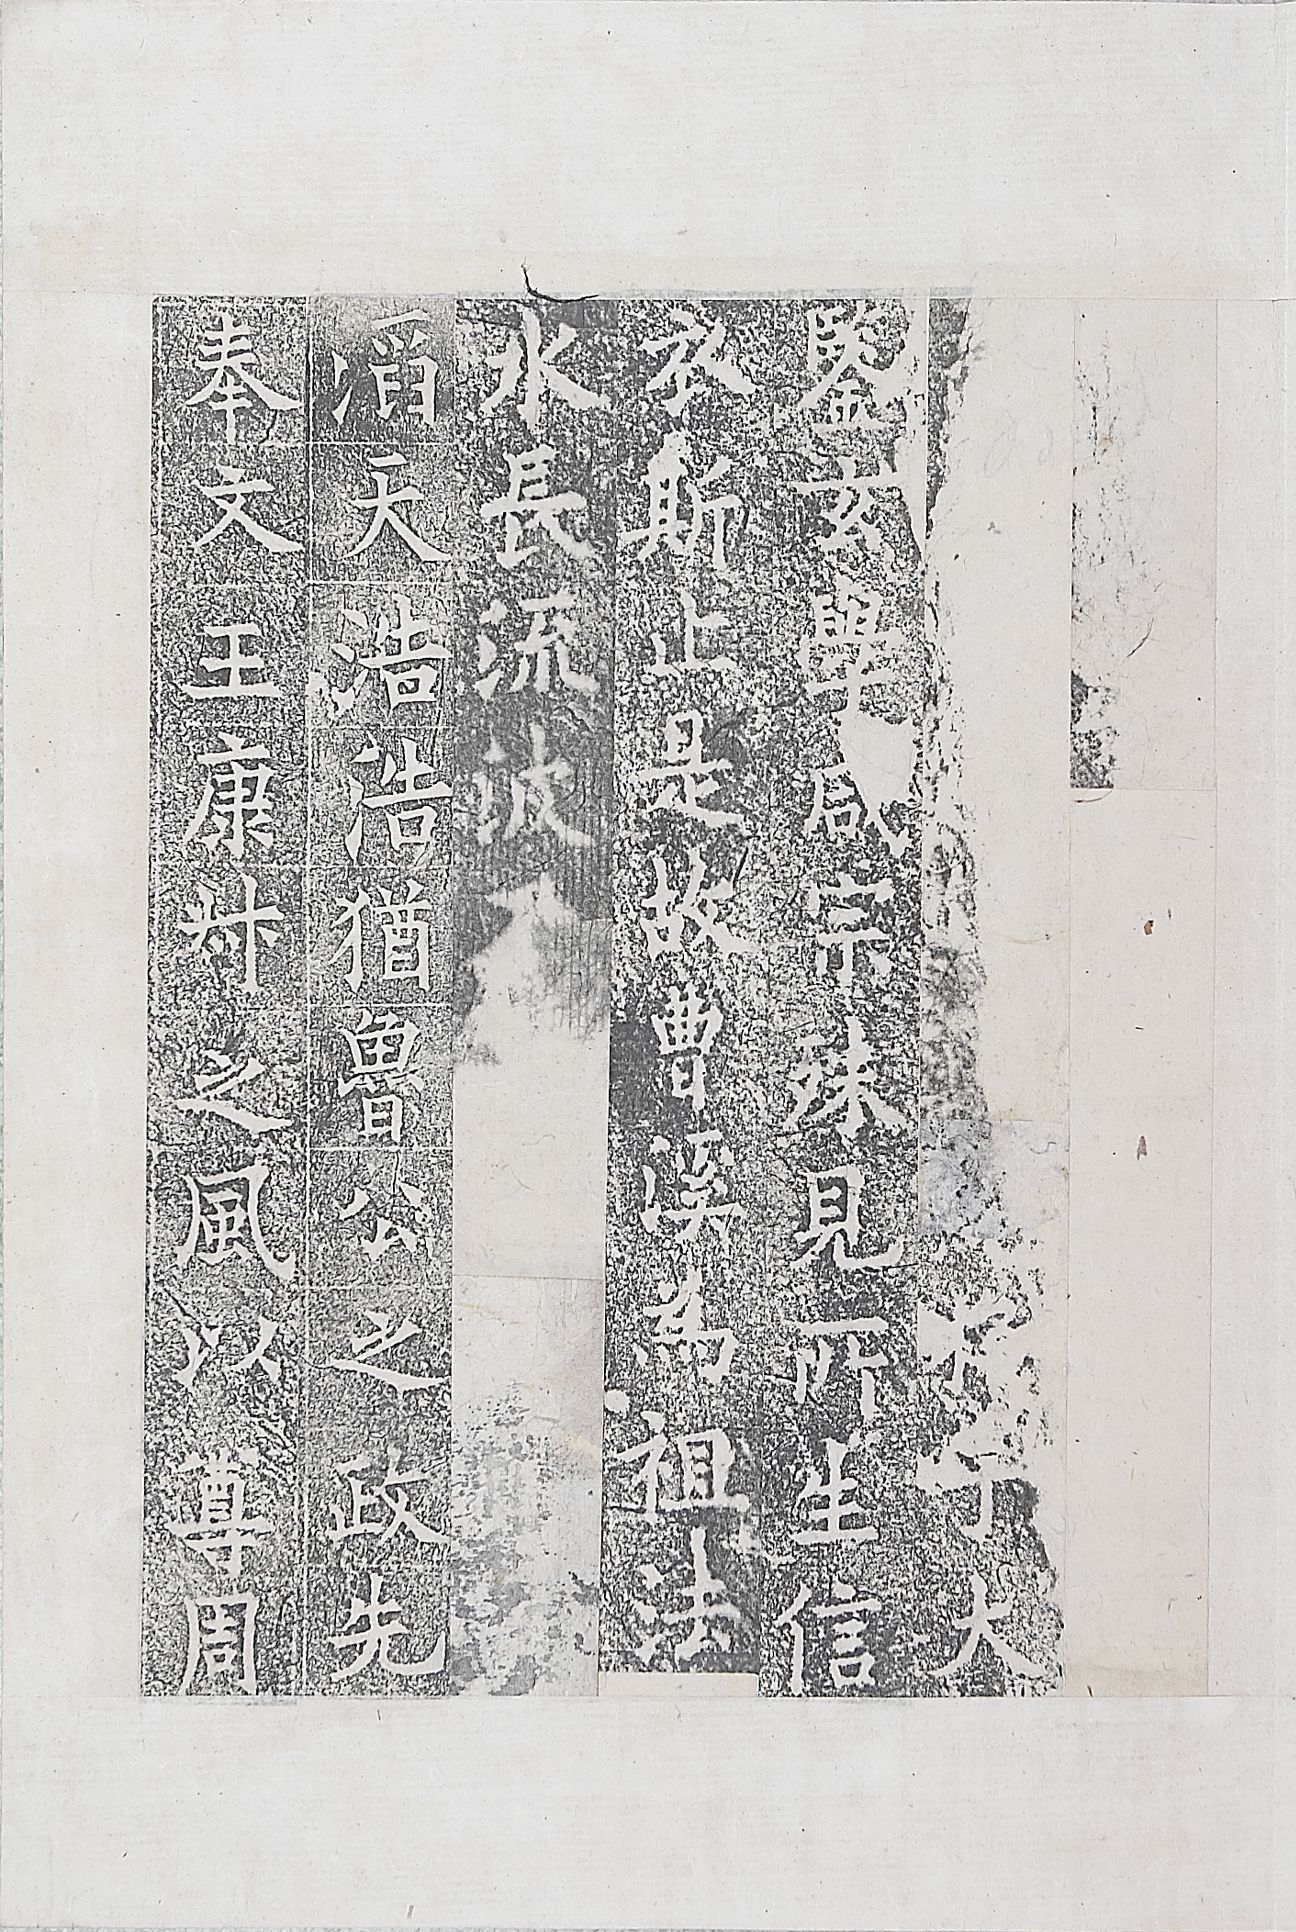 大
鋻玄學咸宗殊見所生信
衣斯止是故曹溪為祖法
水長流波
滔天浩浩猶魯公之政先
奉文王康叔之風以尊周